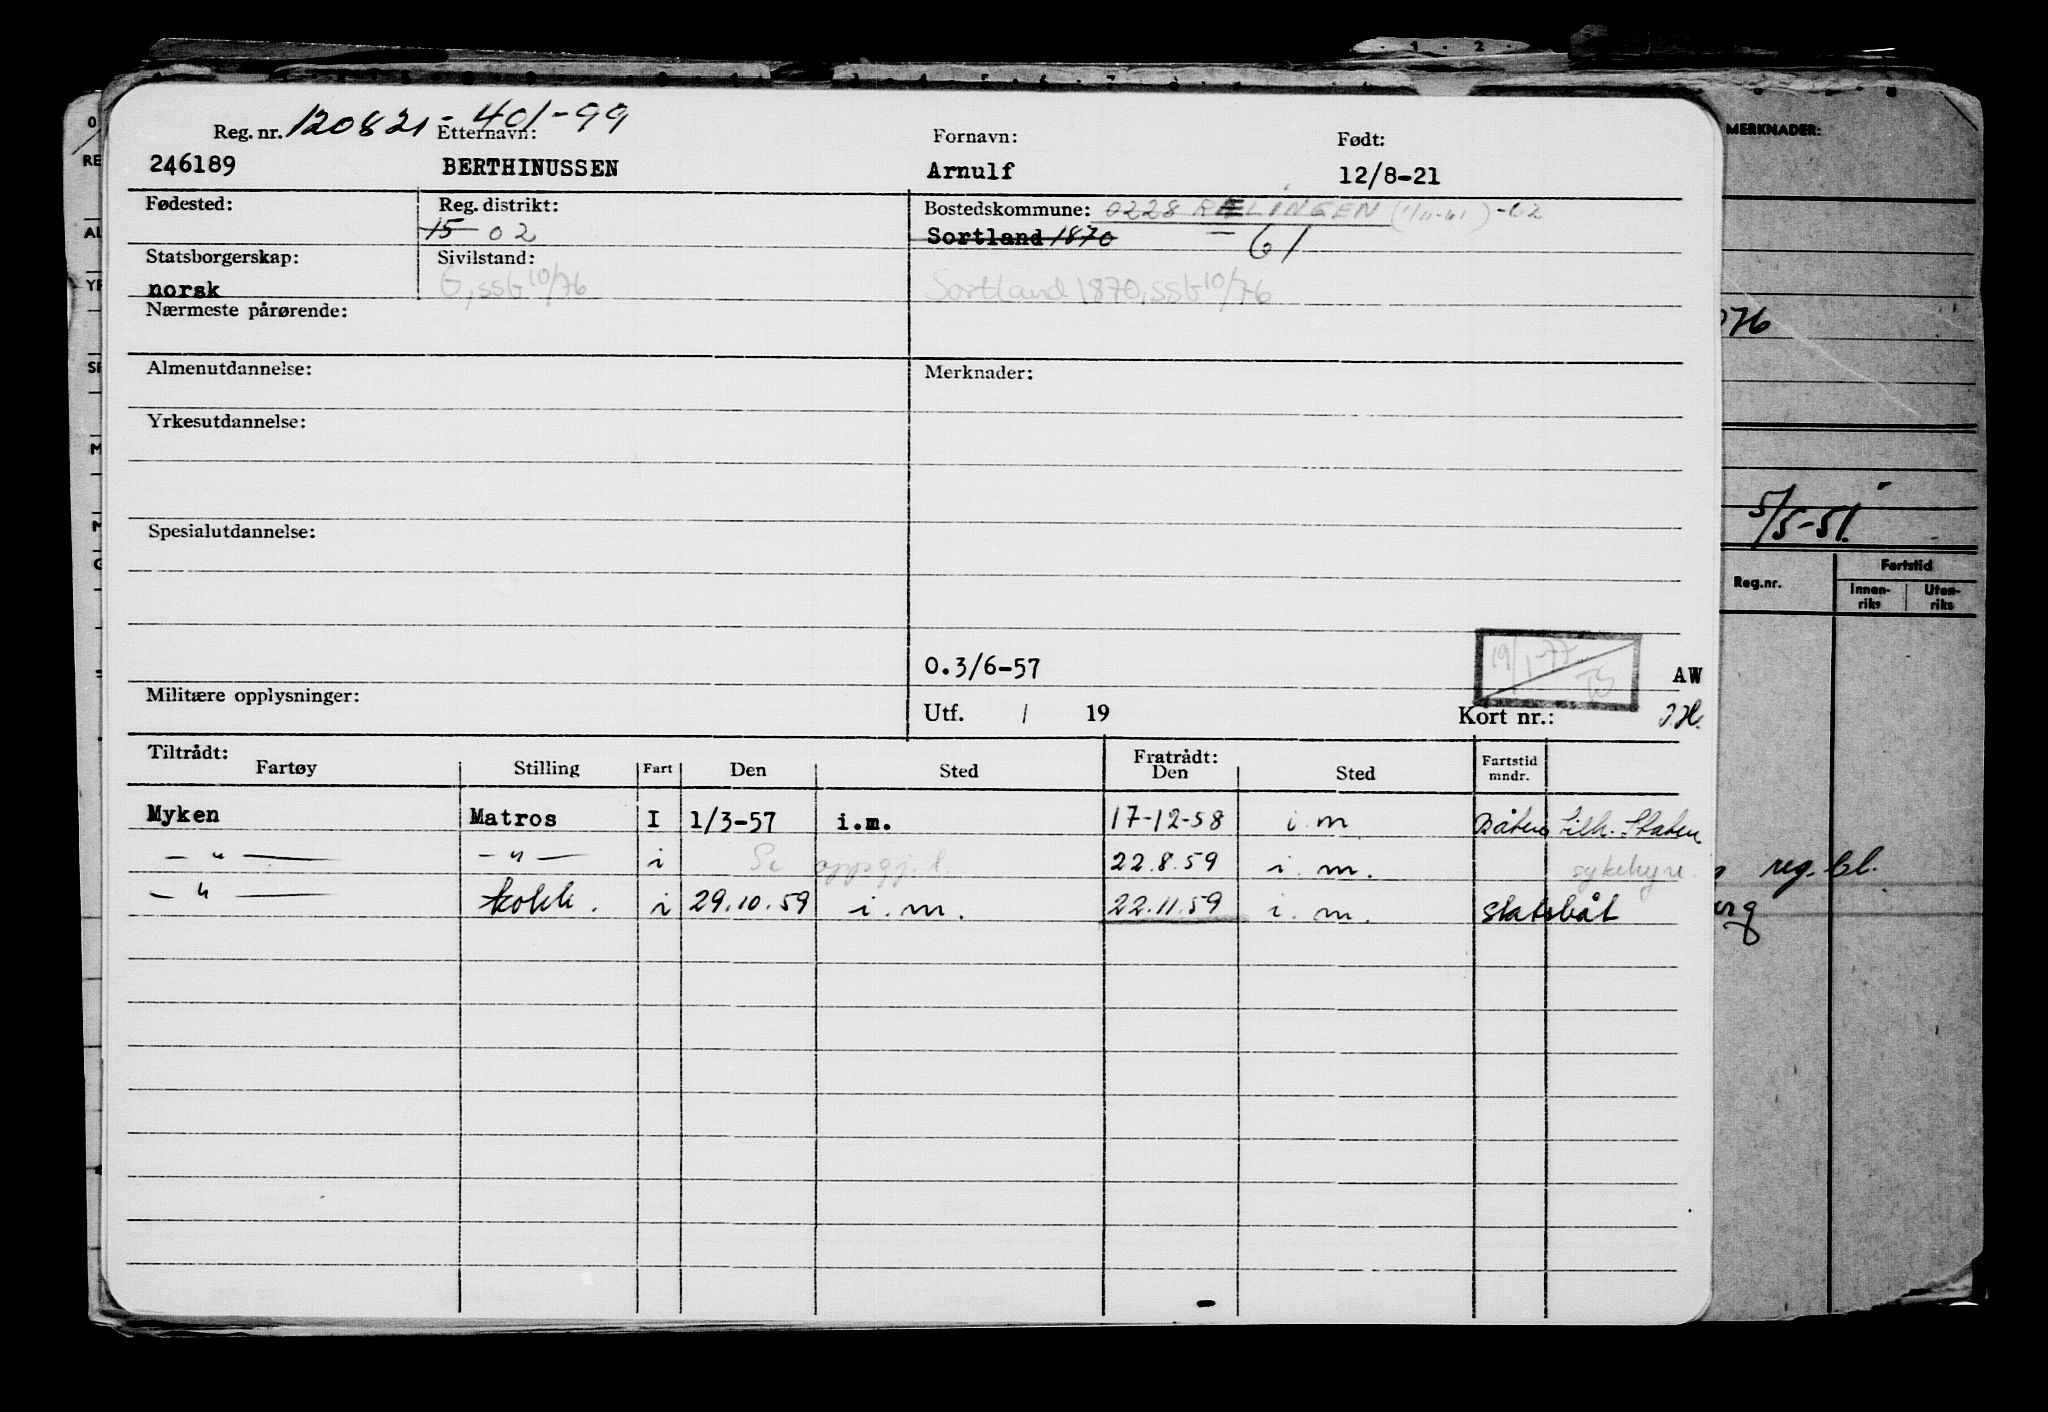 Reg. nr. 120821-401-99 Etternavn: Fornavn: Født:
246189 BERTHINUSSEN Arnulf 12/8-21
Fødested: Reg. distrikt: Bostedskommune: 0228 RÆLINGEN (1/11-61)-62
15 02 Sortland 1870 61
Statsborgerskap: Sivilstand:
norsk G, ssb 10/76 Sortland 1870, ssb 10/76
Nærmeste pårørende:
Almenutdannelse: Merknader:
Yrkesutdannelse:
Spesialutdannelse:
O.3/6-57 19/1-77 TS AW
Militære opplysninger: Utf. / 19 Kort nr.:
Tiltrådt: Fratrådt:
Fartøy Stilling Fart Den Sted Den Sted Fartstid mndr.
Myken Matros I 1/3-57 i.m. 17-12-58 i.m. Båten tilh. Staten
— " — — " — i Se oppgj. 22.8.59 i.m. sykehyre.
— " — kokk. i 29.10.59 i.m. 22.11.59 i.m. statsbåt
MERKNADER:
076
5/5-51.
Reg.nr. Fartstid
Innen-riks Uten-riks
reg. bl.